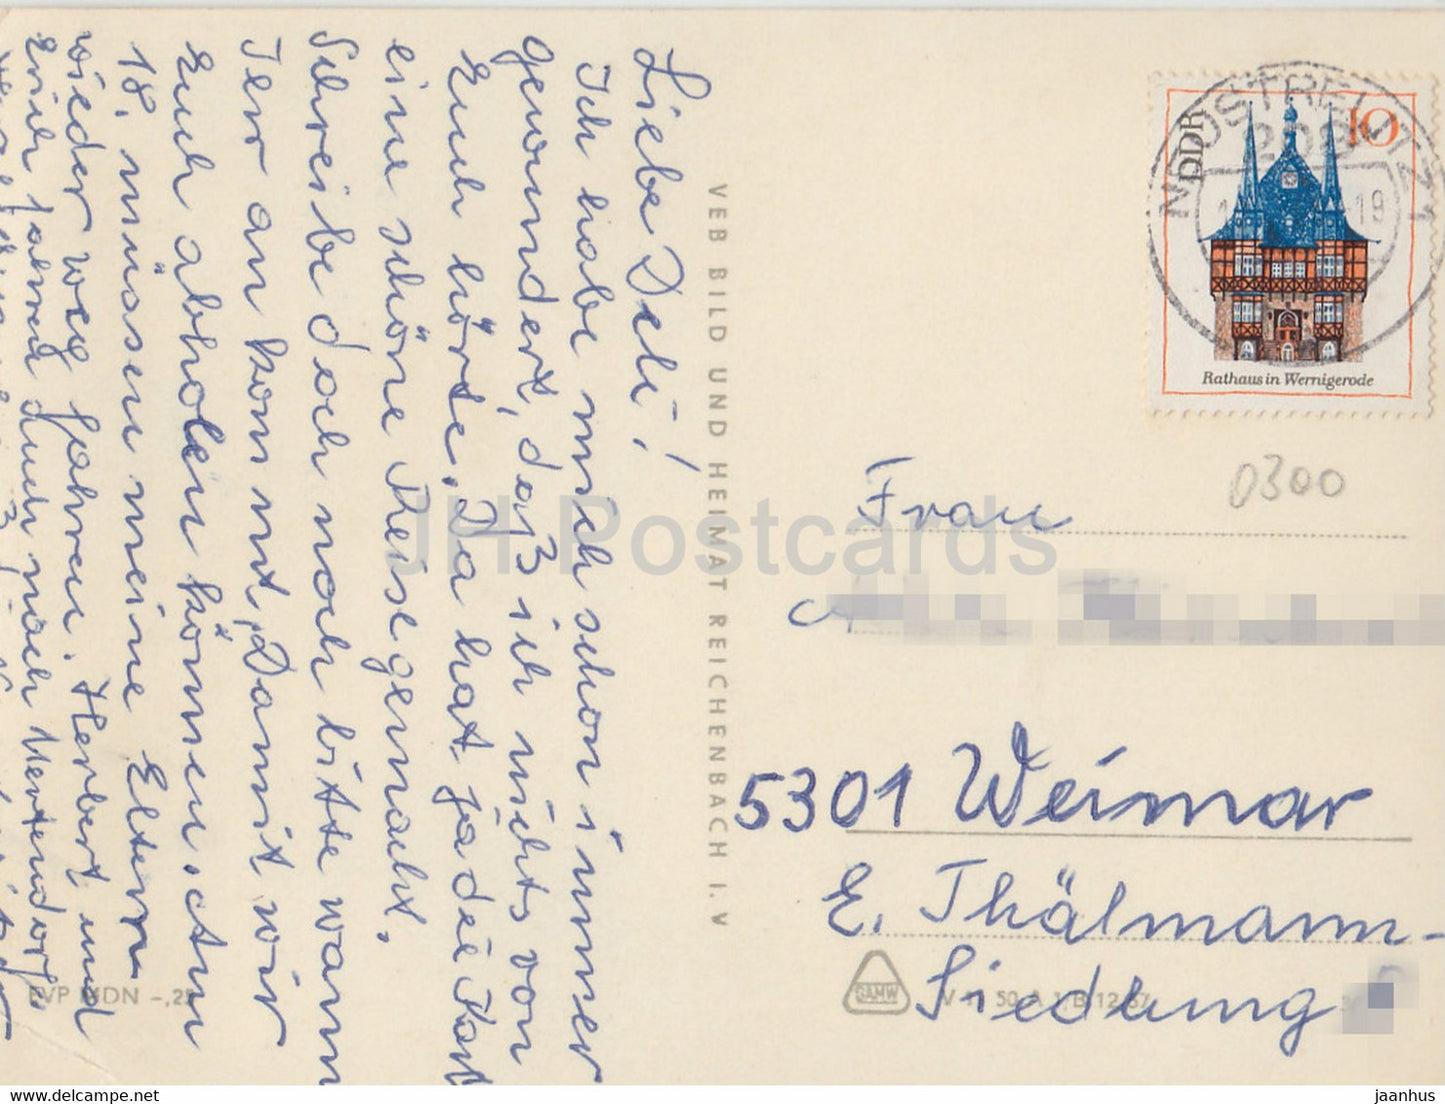 Liebe Deli!
Ich habe mich schon immer
gewundert, daß ich nichts von
Euch hörte. Da hat ja die
eine schöne Reise gemacht.
Schreibe doch noch bitte wann
Ier an kommt, Damit wir
Euch abholen können. Am
18. müssen meine Eltern
wieder weg fahren. Herbert und
Erich fahren auch nach
VEB BILD UND HEIMAT REICHENBACH I. V
EVP MDN -,25
NEUSTRELITZ 1
208
-19
DDR
10
Rathaus in Wernigerode
0300
Frau
5301 Weimar
E. Thälmann-
Siedlung
GAMW
V 11 50 A 1/B 12/67
JH Postcards
www.delcampe.net
jaanhus